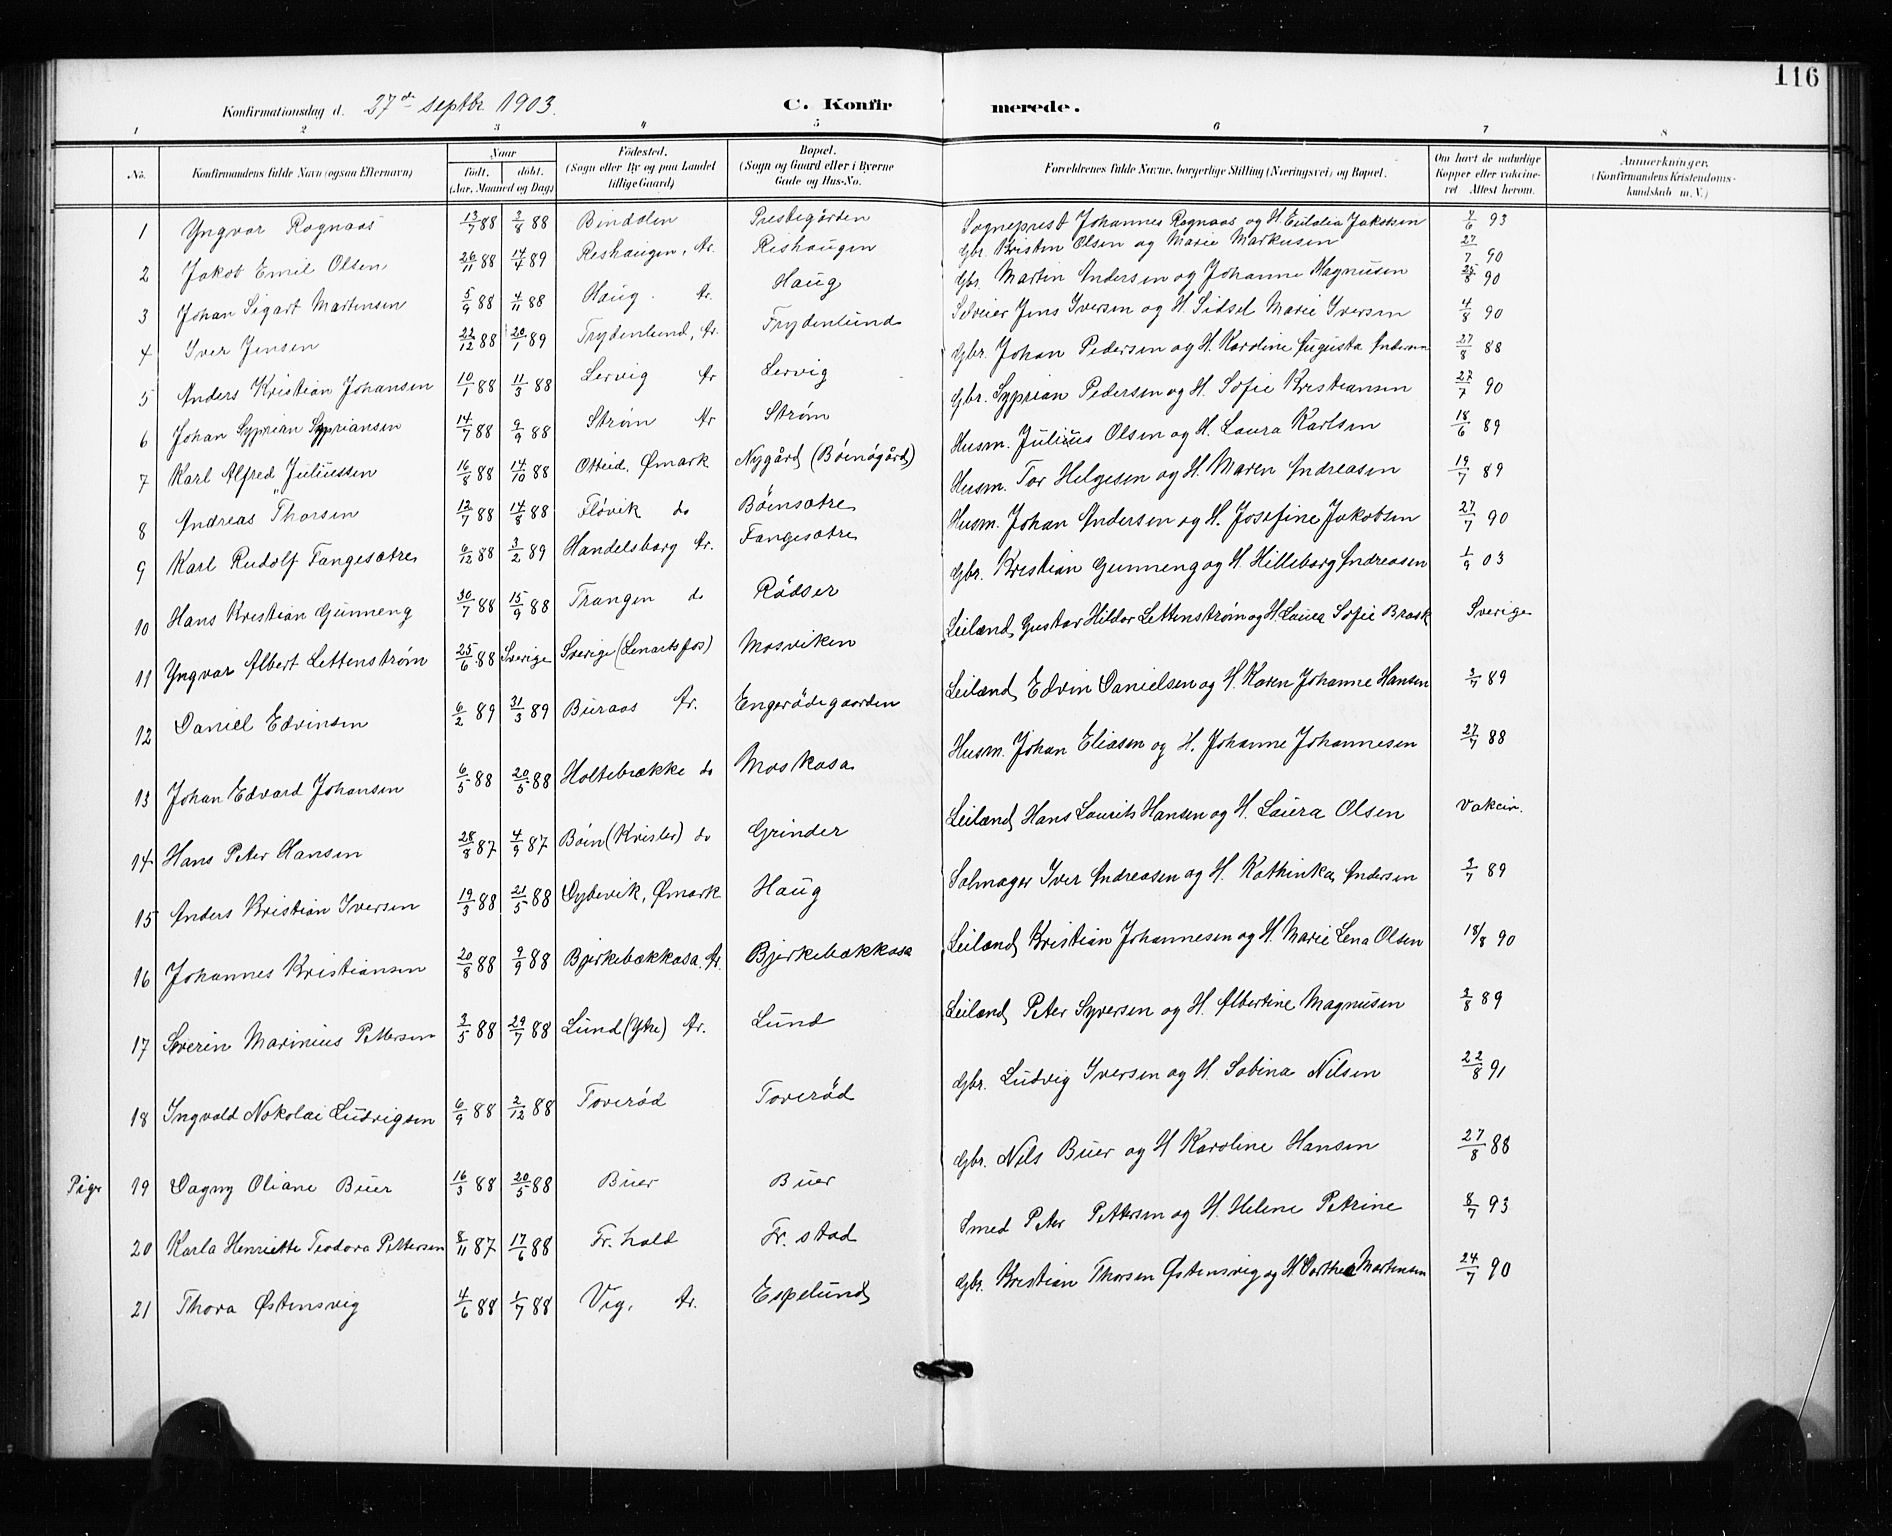 116
Konfirmationsdag d. 27de septbr. 1903. C. Konfirmerede.
1 2 3 4 5 6 7 8
No. Konfirmandens fulde Navn (ogsaa Efternavn) Naar født, døbt. (Aar, Maaned og Dag) Fødested. (Sogn eller By og paa Landet tillige Gaard) Bopæl. (Sogn og Gaard eller i Byerne Gade og Hus-No. Forældrenes fulde Navne, borgerlige Stilling (Næringsvei) og Bopæl. Om havt de naturlige Kopper eller vakcineret Attest herom. Anmærkninger, (Konfirmandens Kristendomskundskab m. V.)
1 Yngvar Rognaas 13/7 88 2/8 88 Bindalen Prestegården Sogneprest Johannes Rognaas og H. Eulalia Jakobsen 7/6 93
2 Jakob Emil Olsen 26/11 88 14/4 89 Reshaugen, Ar. Reshaugen Gbr. Kristen Olsen og Marie Markusen 27/7 90
3 Johan Sigart Martensen 5/9 88 4/11 88 Haug Ar. Haug Gbr. Martin Andersen og Johanne Magnusen 25/8 90
4 Iver Jensen 22/12 88 20/1 89 Frydenlund, Ar. Frydenlund Selveier Jens Iversen og H. Sidsel Marie Iversen 4/8 90
5 Anders Kristian Johansen 10/1 88 11/3 88 Lervig Ar Lervig Gbr. Johan Pedersen og H. Karoline Augusta Andersen 27/8 88
6 Johan Syprian Sypriansen 14/7 88 9/9 88 Strøm Ar Strøm Gbr. Syprian Pedersen og H. Sofie Kristiansen 27/7 90
7 Karl Alfred Juliussen 16/8 88 14/10 88 Otteid, Ømark Nygård (Böensgård) Husm. Julius Olsen og H. Laura Karlsen 18/6 89
8 Andreas Thorsen 12/7 88 14/8 88 Fløvik do Böensætre Husm. Tor Helgesen og H. Maren Andreasen 19/7 89
9 Karl Rudolf Fangesætre 6/12 88 3/2 89 Handelsborg Ar. Fangesætre Husm. Johan Andersen og H. Josefine Jakobsen 27/7 90
10 Hans Kristian Gunneng 30/7 88 15/9 88 Trangen do Rödser Gbr. Kristian Gunneng og H. Hilleborg Andreasen 1/9 03
11 Yngvar Albert Lettenstrøm 25/6 88 Sverige Sverige (Lenartsfos) Mosviken Leilænd. Gustav Hildor Lettenstrøm og H. Laura Sofie Brask Sverige
12 Daniel Edvinsen 6/2 89 31/3 89 Buraas Ar. Engerödegaarden Leilænd. Edvin Danielsen og H. Karen Johanne Hansen 3/7 89
13 Johan Edvard Johansen 6/5 88 20/5 88 Holtebrække do Moskasa Husm. Johan Eliasen og H. Johanne Johannesen 27/7 88
14 Hans Peter Hansen 28/8 87 4/9 87 Böen (Krisler) do Grinder Leilænd. Hans Laurits Hansen og H. Laura Olsen Vakcin.
15 Anders Kristian Iversen 19/3 88 21/5 88 Dybevik, Ømark Haug Salmager Iver Andreasen og H. Kathinka Andersen 3/7 89
16 Johannes Kristiansen 20/8 88 9/9 88 Bjerkebækkasa, Ar. Bjerkebækkasa Leilænd. Kristian Johannesen og H. Marie Lena Olsen 18/8 90
17 Severin Marinius Pettersen 3/5 88 29/7 88 Lund (Ytre) Ar. Lund Leilænd. Peter Syversen og H. Albertine Magnusen 3/8 89
18 Ingvald Nokolai Ludvigsen 6/9 88 2/12 88 Toveröd Toveröd Gbr. Ludvig Iversen og H. Sabina Nilsen 22/8 91
Piger 19 Dagny Oliane Buer 16/3 88 20/5 88 Buer Buer Gbr. Nils Buer og H Karoline Hansen 27/8 88
20 Karla Henriette Teodora Pettersen 8/11 87 17/6 88 Fr. hald Fr. stad Smed Peter Pettersen og H. Helene Petrine 8/7 93
21 Thora Østensvig 4/6 88 1/7 88 Vig, Ar. Espelund Gbr. Kristian Thorsen Østensvig og H Dorthea Martensen 24/7 90